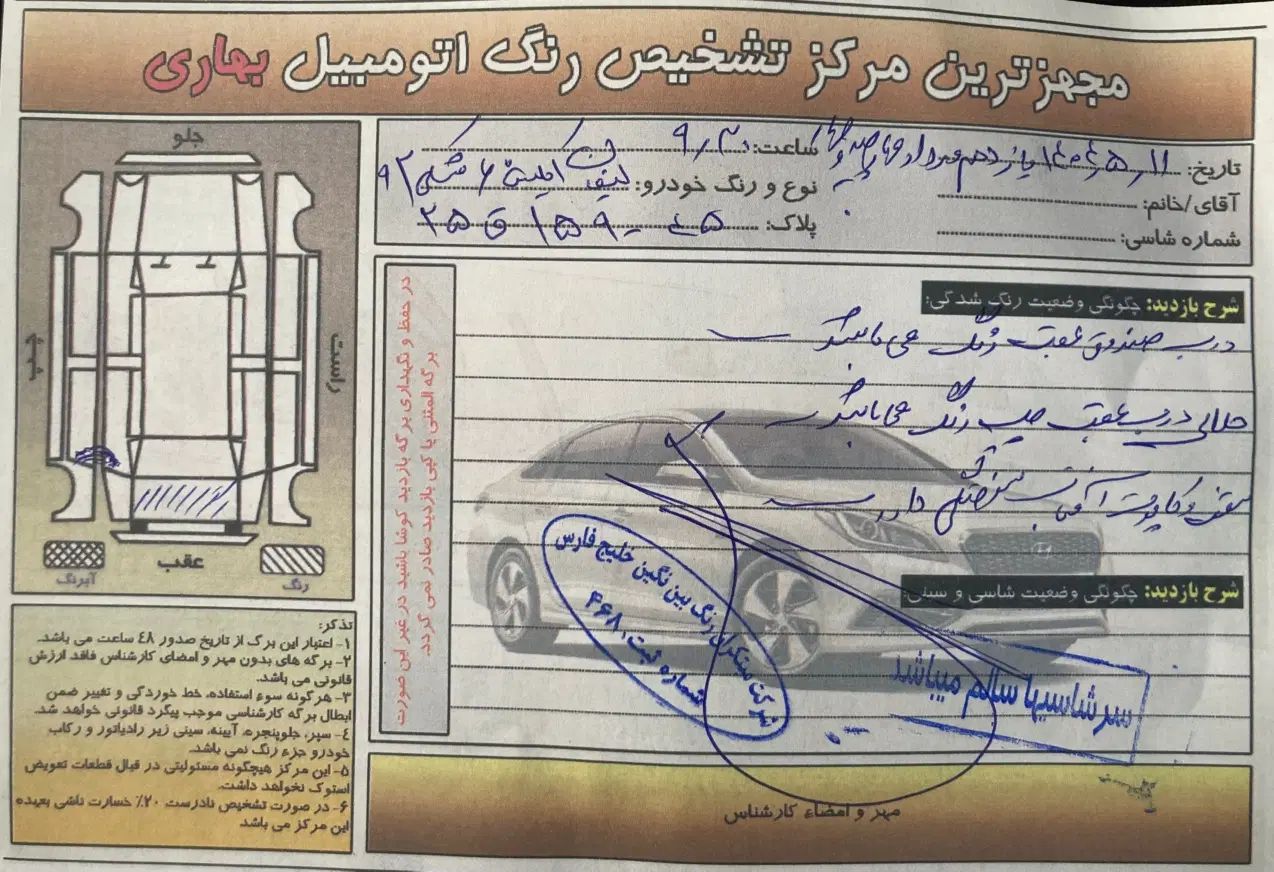 مجهزترین مرکز تشخیص رنگ اتومبیل بهاری
تاریخ: ۱۴۰۴٫۵٫۱۱ یازدهم مرداد
ساعت: ۹٫۳۰
آقای/خانم:
نوع و رنگ خودرو: لیفان مشکی ۹۲
شماره شاسی:
پلاک: ۴۵ - ۱۵۹ ق ۲۵
جلو
چپ
راست
عقب
آبرنگ
رنگ
در حفظ و نگهداری برگه بازدید کوشا باشید در غیر این صورت
برگه المثنی یا کپی بازدید صادر نمی گردد.
شرح بازدید: چگونگی وضعیت رنگ شدگی:
درب صندوق عقب رنگ می باشد
حلالی درب عقب چپ رنگ می باشد
سقف و کاپوت آفتاب سوختگی دارد
شرح بازدید: چگونگی وضعیت شاسی و سینی:
سر شاسیها سالم میباشد
شرکت مبتکران رنگ بین نگین خلیج فارس
شماره ثبت: ۴۶۸۰
مهر و امضاء کارشناس
تذکر:
۱- اعتبار این برگ از تاریخ صدور ٤٨ ساعت می باشد.
۲- برگه های بدون مهر و امضای کارشناس فاقد ارزش
قانونی می باشد.
۳- هرگونه سوء استفاده، خط خوردگی و تغییر ضمن
ابطال برگه کارشناسی موجب پیگرد قانونی خواهد شد.
٤- سپر، جلوپنجره، آیینه، سینی زیر رادیاتور و رکاب
خودرو جزء رنگ نمی باشد.
۵- این مرکز هیچگونه مسئولیتی در قبال قطعات تعویض
استوک نخواهد داشت.
۶- در صورت تشخیص نادرست ۲۰٪ خسارت ناشی بعهده
این مرکز می باشد.